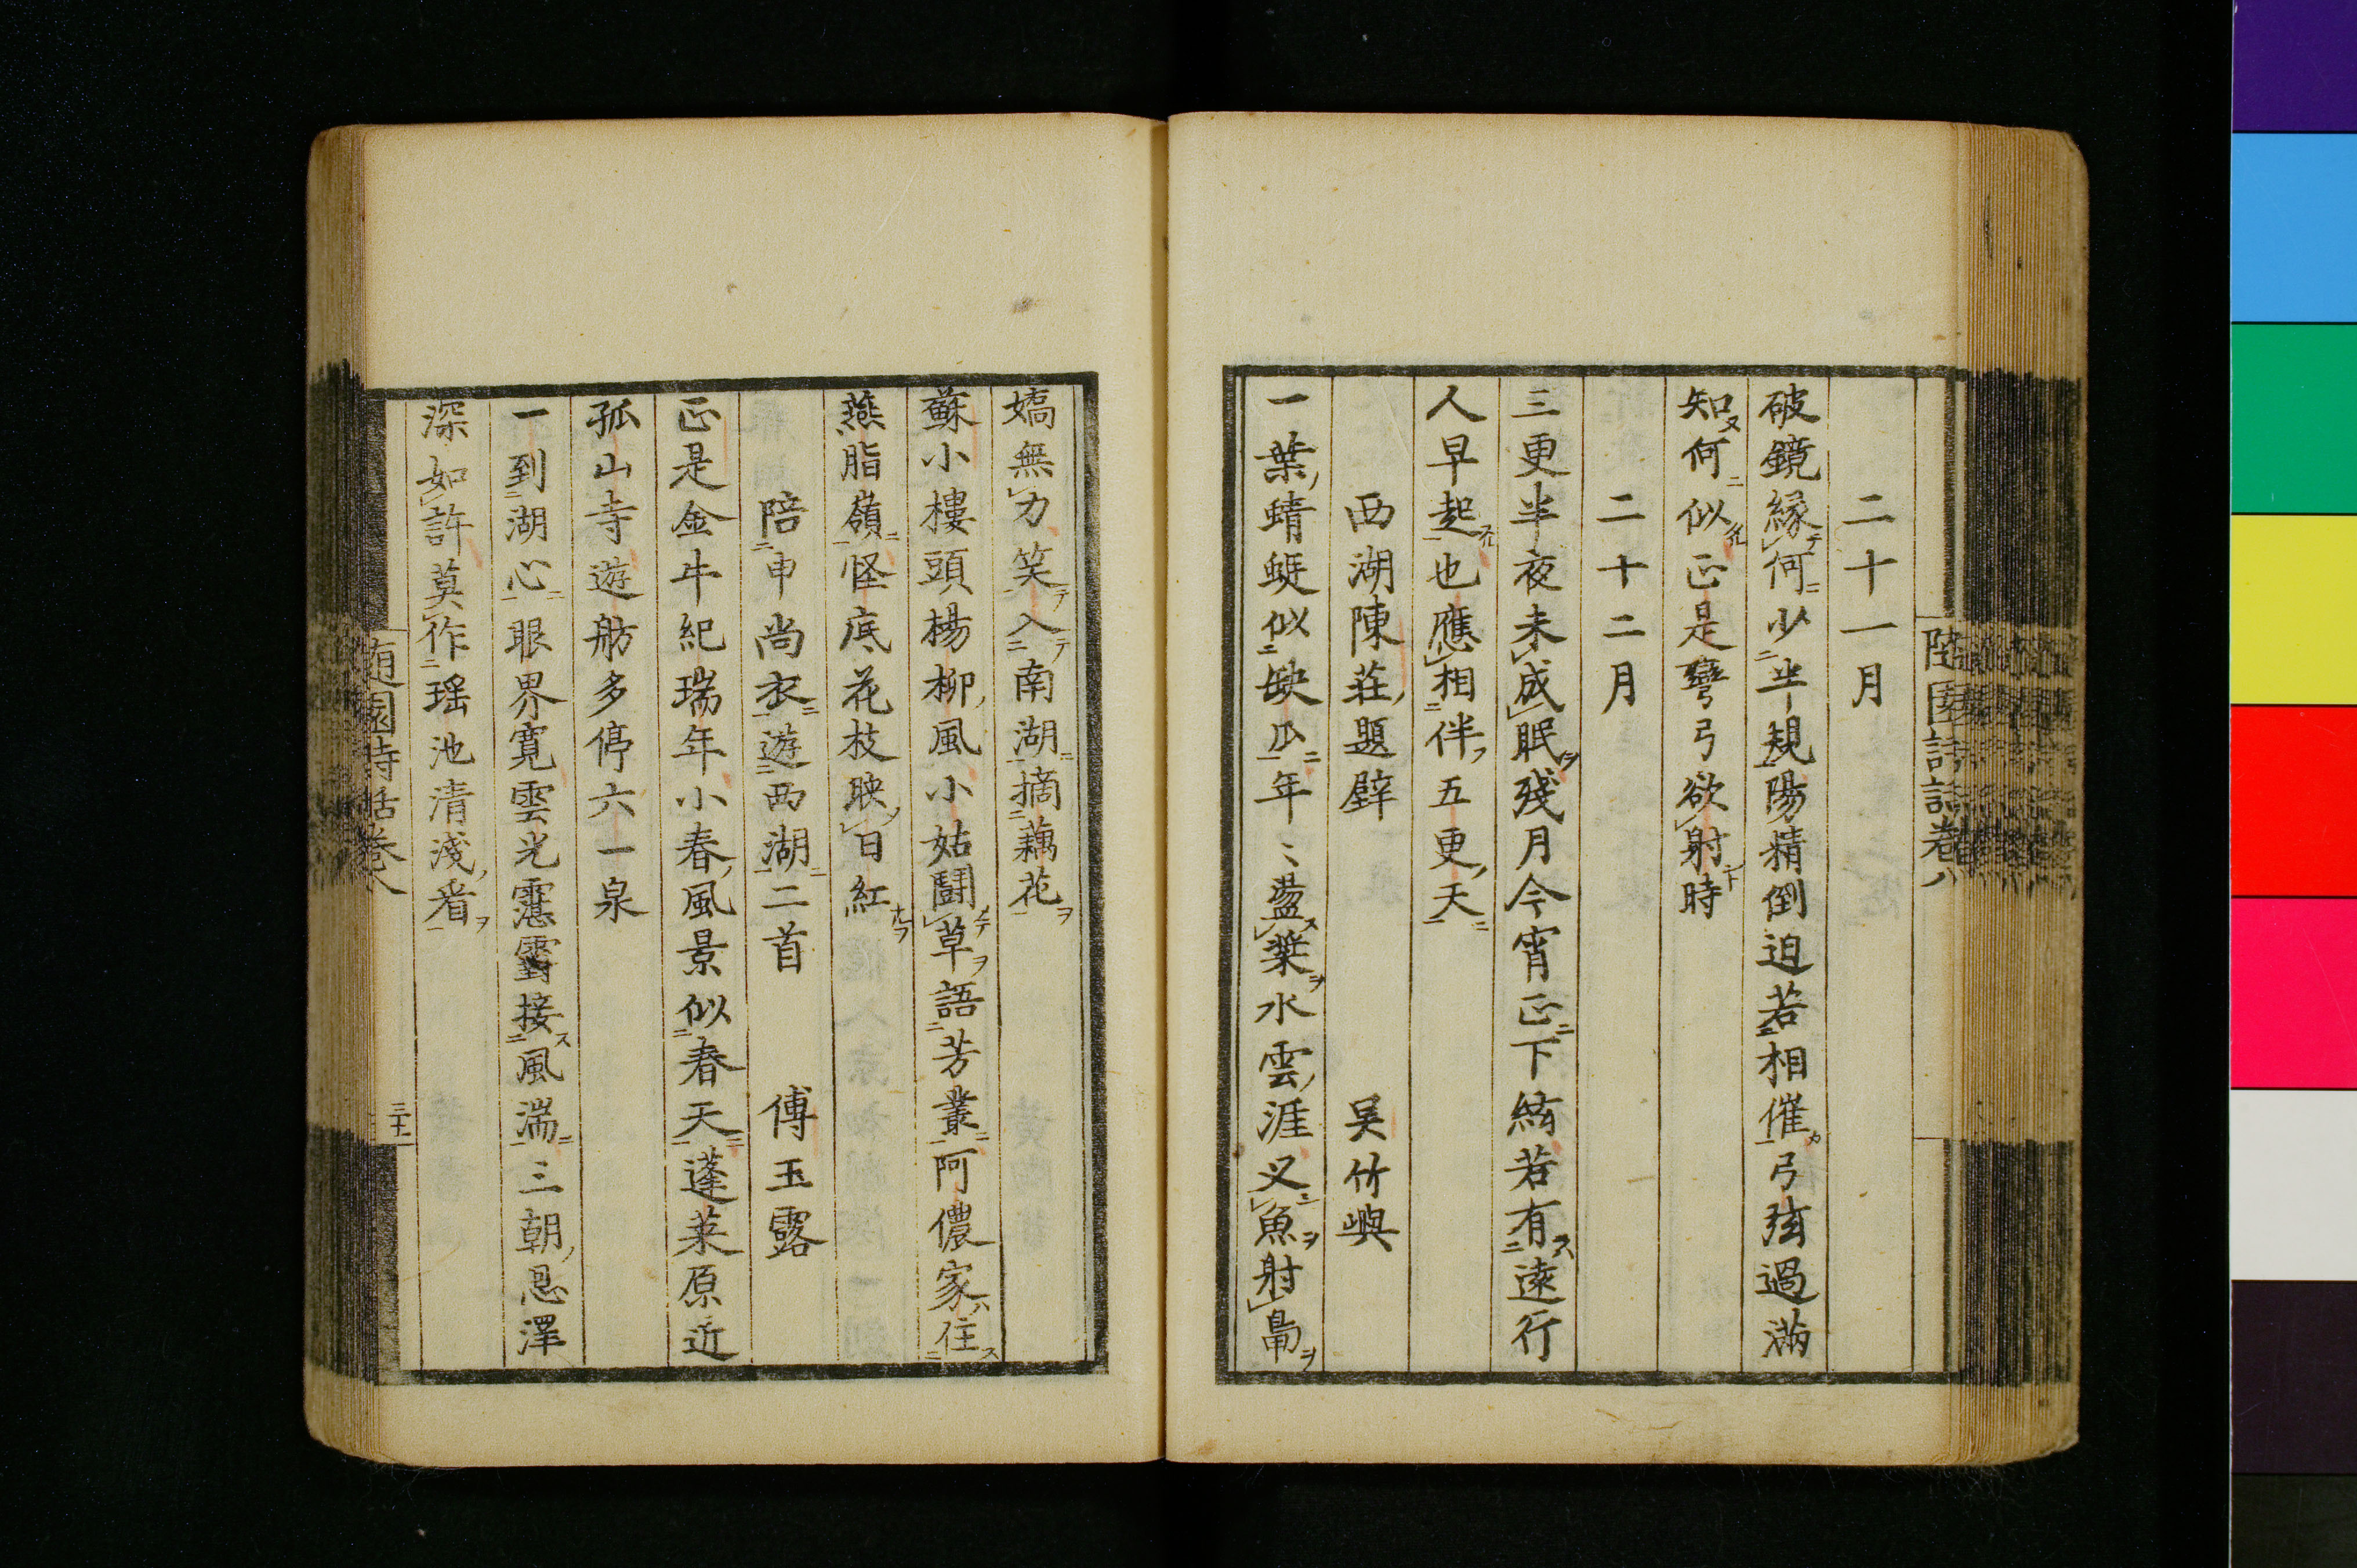 二十一月
破鏡縁何少半規陽精倒迫若相催弓弦過滿
知何似正是彎弓欲射時
二十二月
三更半夜未成眠殘月今宵正下絃若有遠行
人早起也應相伴五更天
西湖陳莊題壁　吴竹嶼
一葉蜻蜓似缺瓜年〻盪槳水雲涯义魚射鼂
嬌無力笑入南湖摘藕花
蘇小樓頭楊柳風小姑鬪草語芳叢阿儂家住
燕脂嶺怪底花枝映日紅
陪申尚衣遊西湖二首　傅玉露
正是金牛紀瑞年小春風景似春天蓬莱原近
孤山寺遊舫多停六一泉
一到湖心眼界寬雲光靄接風湍三朝恩澤
深如許莫作瑶池清淺看
随園詩話卷八